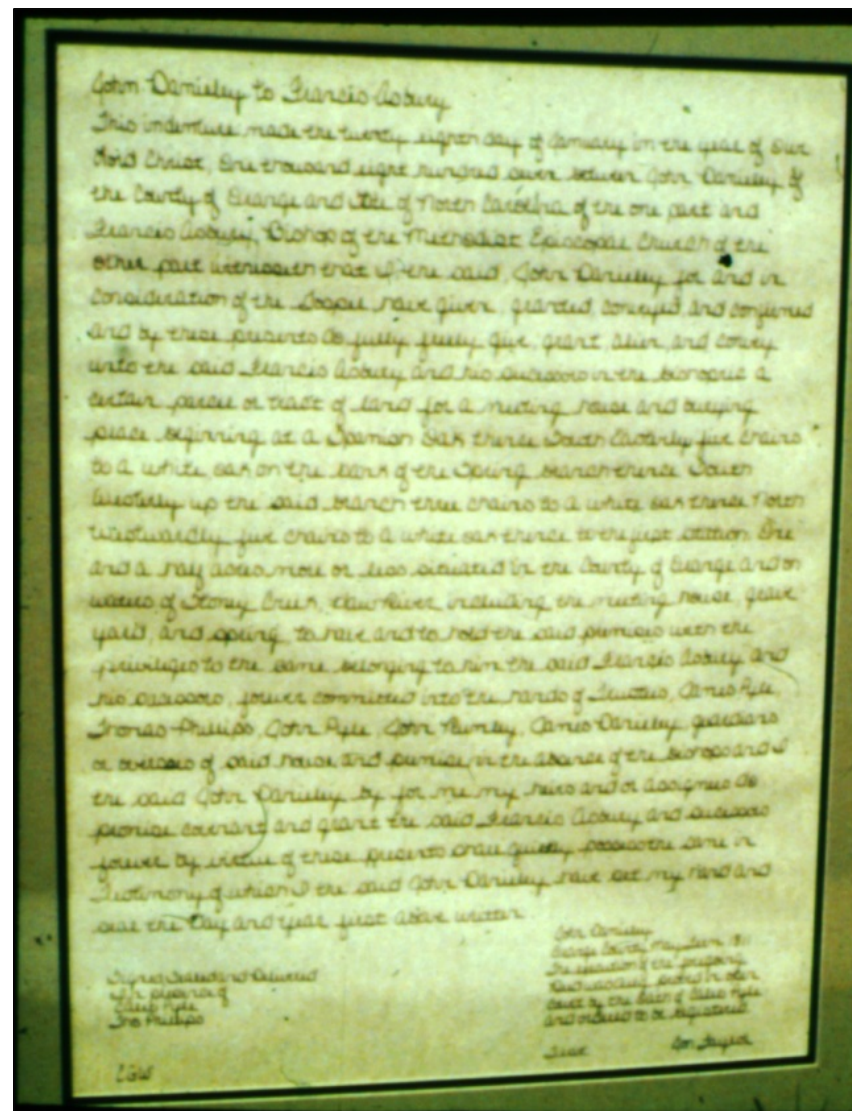 John Danieley to Francis Asbury
This indenture made the twenty eighth day of January in the year of our
Lord Christ, One thousand eight hundred between John Danieley of
the County of Orange and State of North Carolina of the one part and
Francis Asbury, Bishop of the Methodist Episcopal Church of the
other part witnesseth that I the said, John Danieley for and in
consideration of the Gospel have given, granted, conveyed and confirmed
and by these presents do fully freely give, grant, alien, and convey
unto the said Francis Asbury and his successors in the bishopric a
certain parcel or tract of land for a meeting house and burying
place beginning at a Spanish Oak thence South Easterly five chains
to a white oak on the bank of the Spring branch thence South
Westerly up the said branch three chains to a white oak thence North
Westwardly five chains to a white oak thence to the first station One
and a half acres more or less situated in the County of Orange and on
waters of Stoney Creek, Haw River, including the meeting house, grave
yard, and spring, to have and to hold the said premises with the
privileges to the same belonging to him the said Francis Asbury and
his successors, forever committed into the hands of Trustees, James Pyle,
Thomas Phillips, John Pyle, John James Danieley guardians
or overseers of said house and premise in the absence of the bishops and I
the said John Danieley by for me my heirs and or assignees do
promise covenant and grant the said Francis Asbury and successors
forever by virtue of these presents shall quietly possess the same in
Testimony of which I the said John Danieley have set my hand and
seal the Day and Year first above written.
Signed Sealed and Delivered
in presence of
Caleb Pyle
Tho Phillips
John Danieley
Orange County May Term
The execution of the foregoing
Deed was duly proved in open
Court by the oath of Caleb Pyle
and ordered to be registered.
Jon Taylor